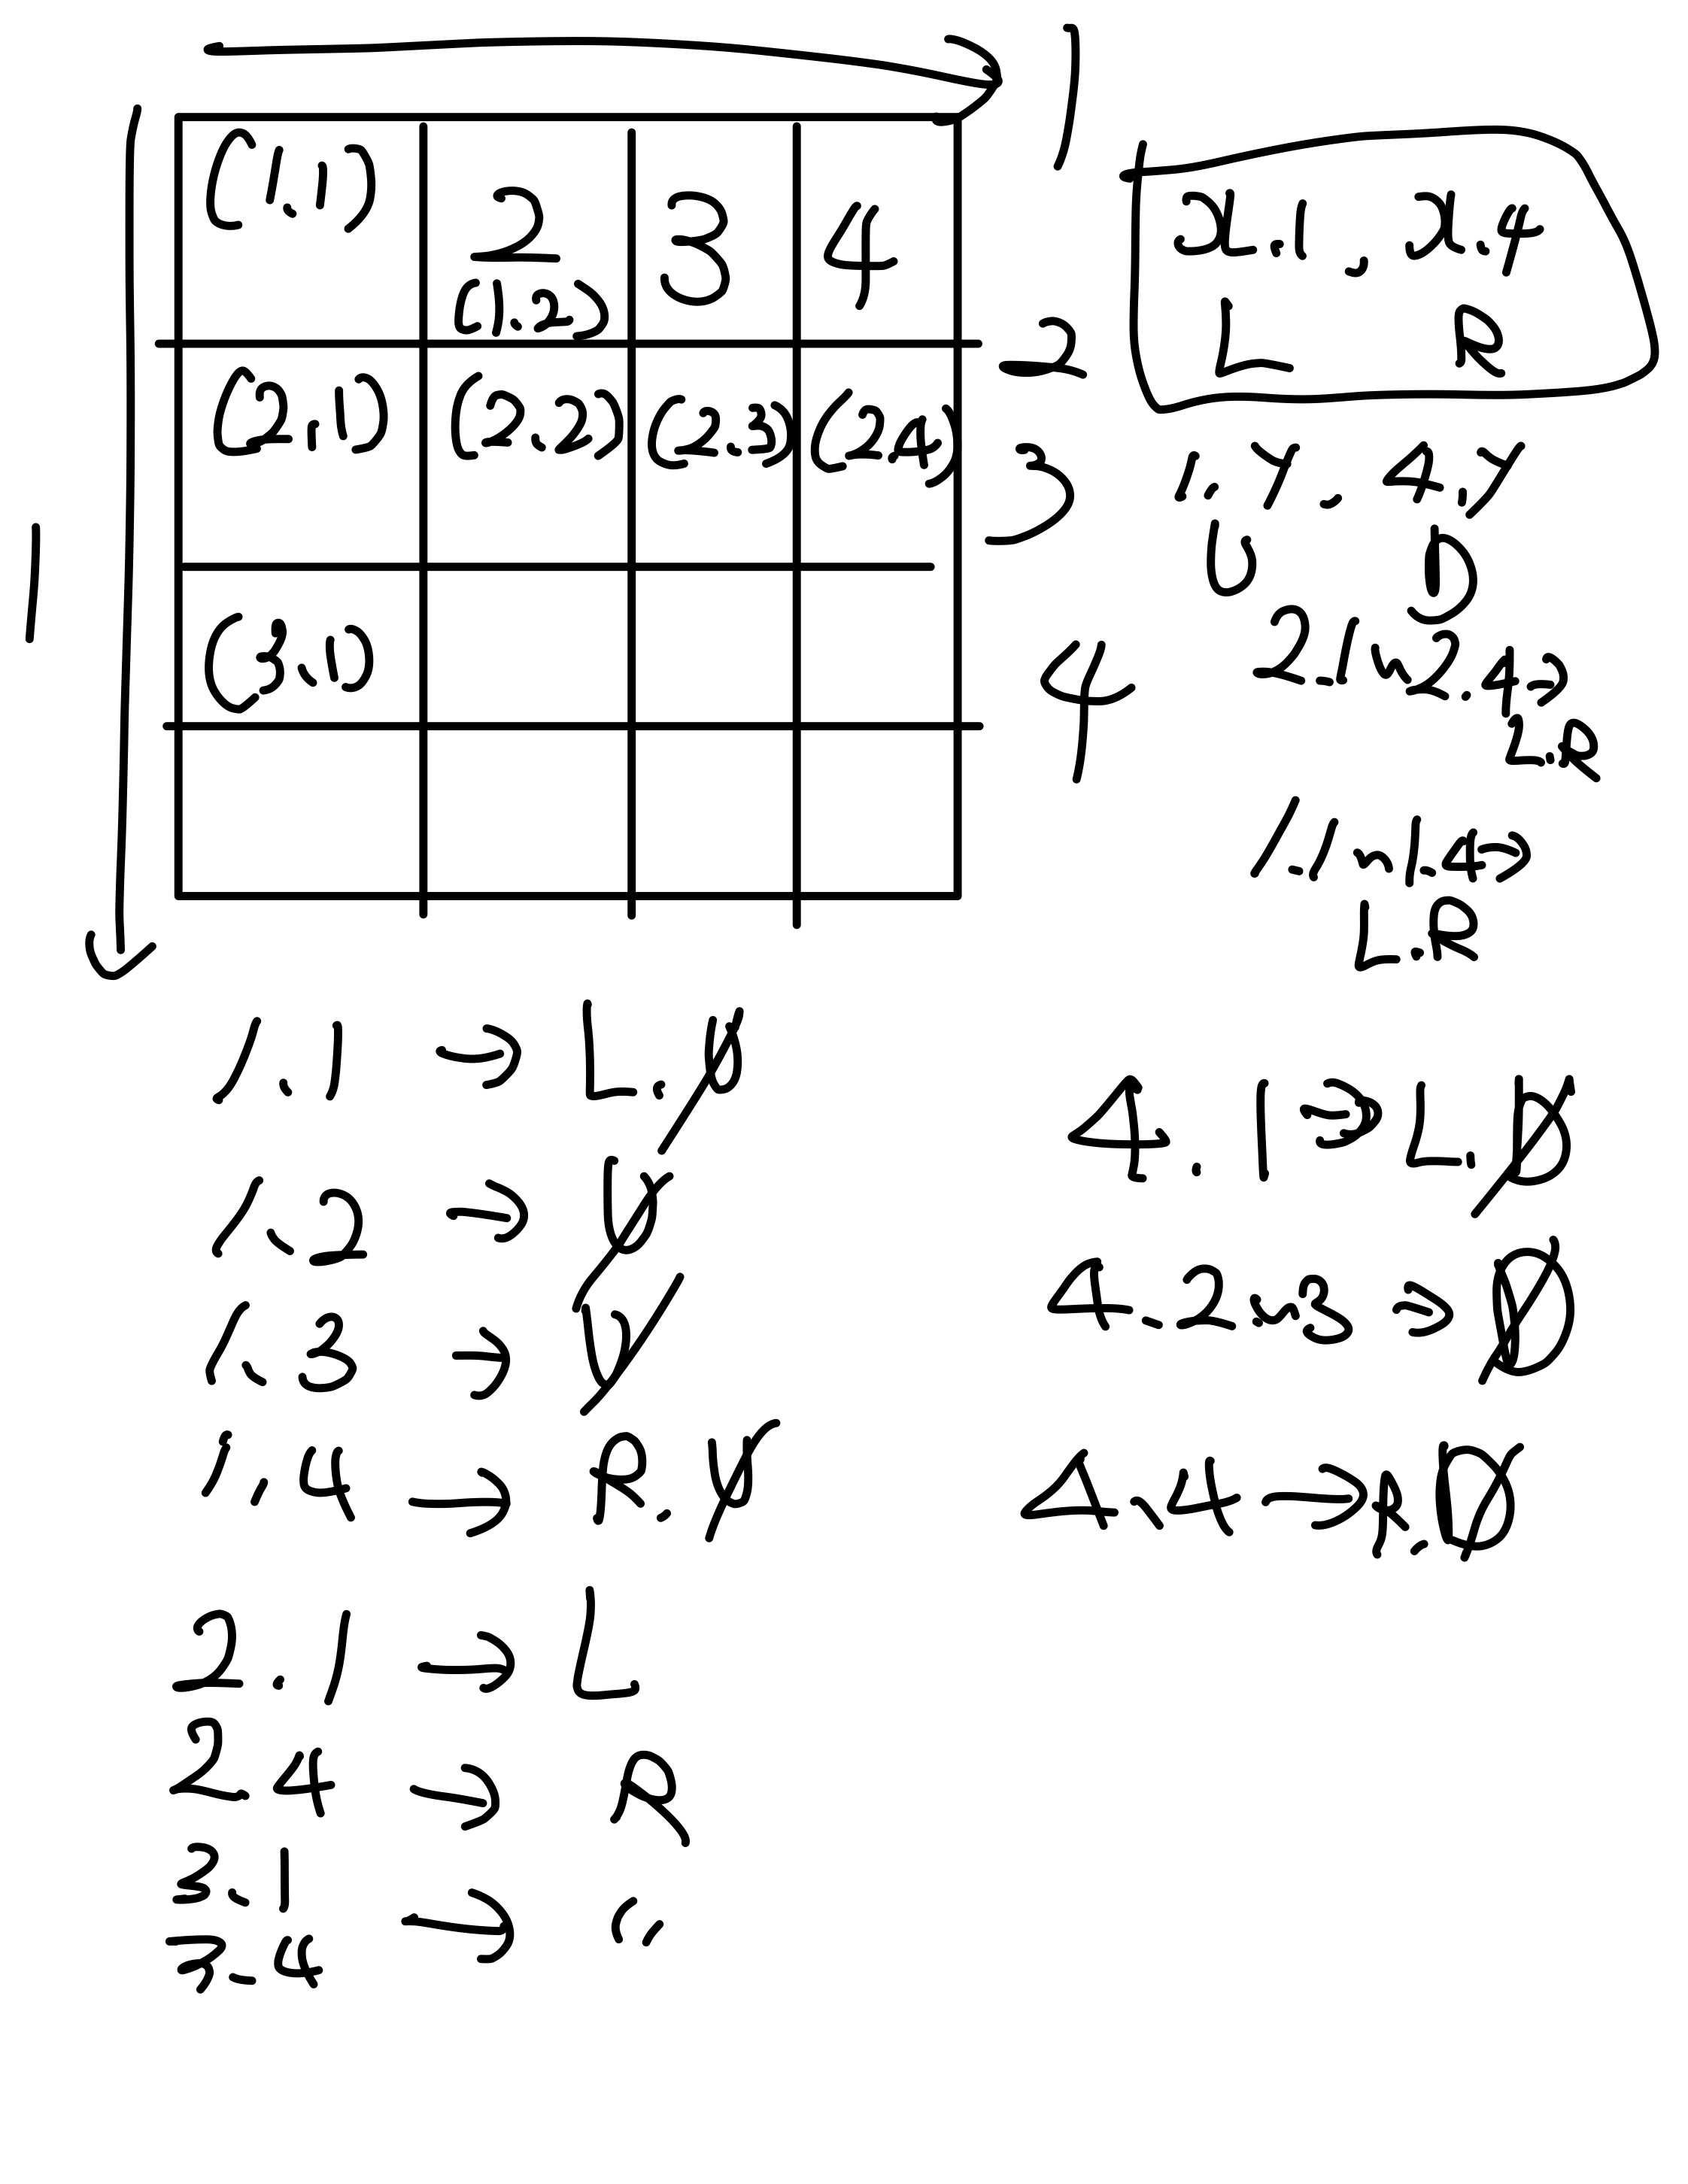 1
(1,1) 2 3 4
(1,2)
2
(2,1) (2,2) (2,3) (2,4)
3
1
(3,1)
4
x.1, x.4
L R
1.y, 4.y
U D
2.1~2.4⇒
L.R
1.1~1.4⇒
L.R
1.1 → L.U
1.2 → U
1.3 → U
1.4 → R.U
2.1 → L
2.4 → R
3.1
3.4 → "
4.1 ⇒ L.D
4.2~3 ⇒ D
4.4 → R.D